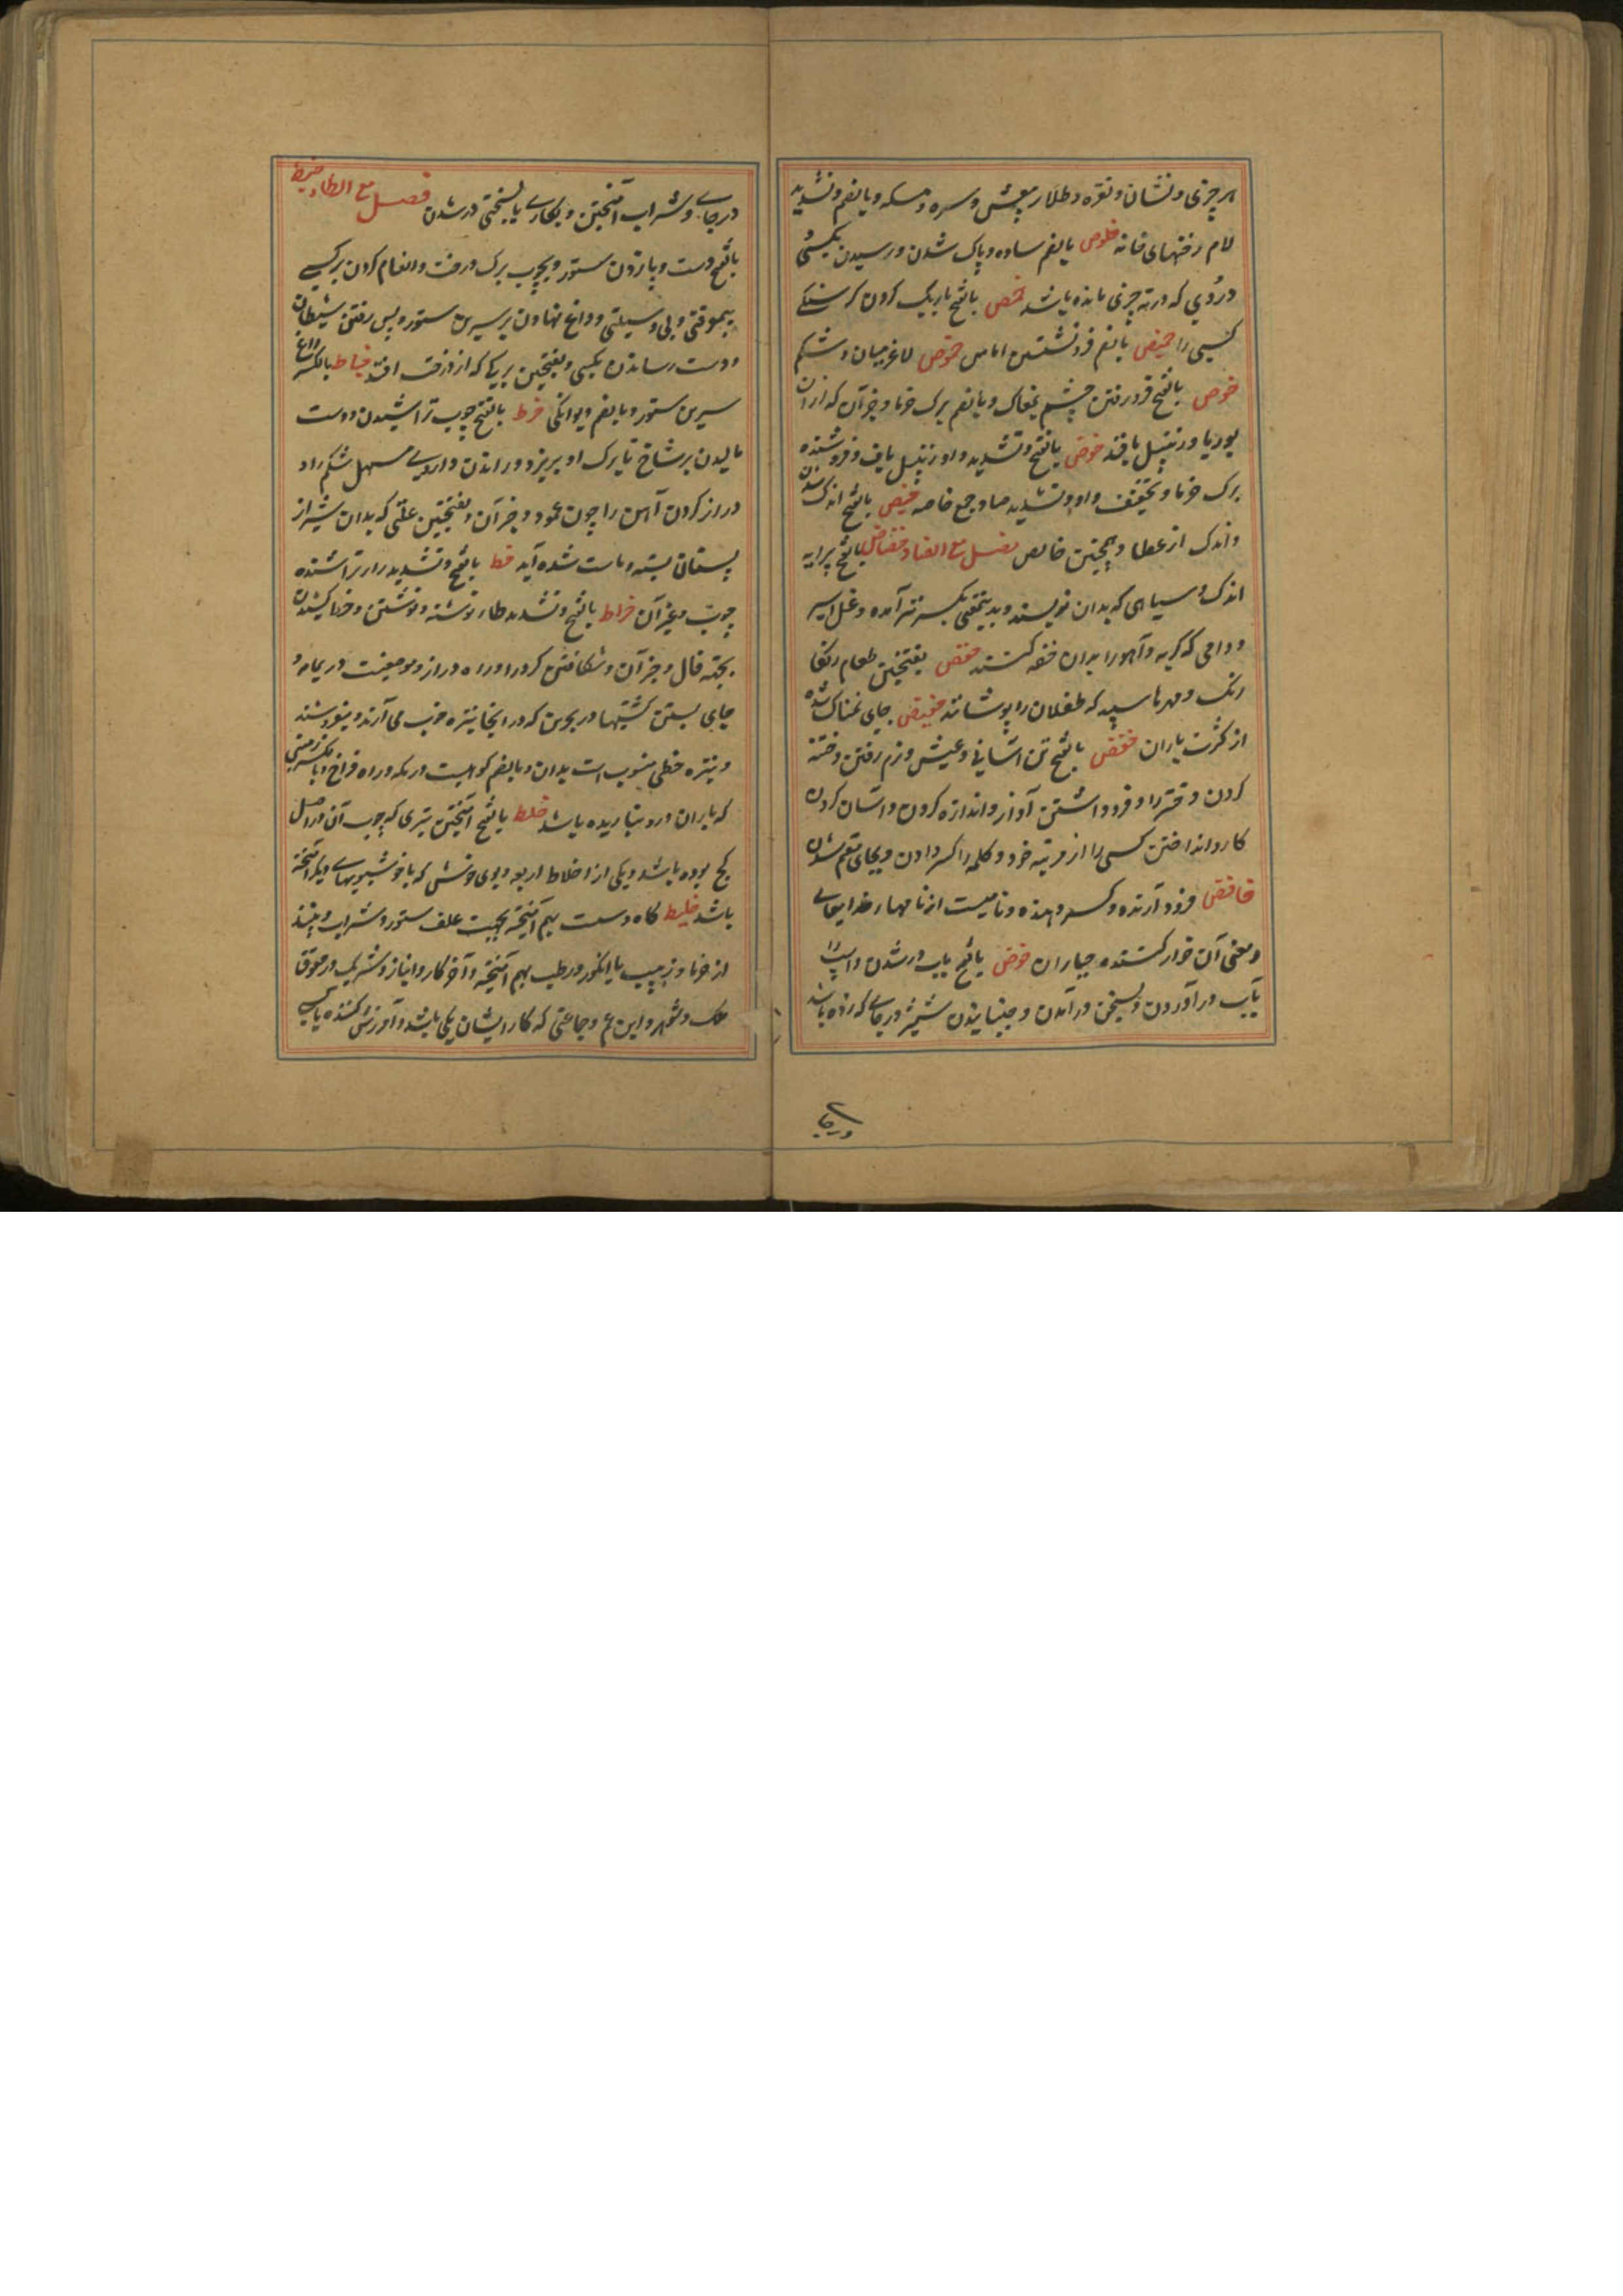 هر چیزی و نشان و نقره و طلا و سره و مسکه و بالضم و تشدید
لام رفتنهای خانه خلوص بالضم ساده و پاک شدن و رسیدن بکسی و
دردی که در ته چیزی مانده باشد خمص بالفتح باریک کردن گرسنگی
کسی را خمیص بالضم فرو نشستن اماس خموص لاغر میان و شکم
خوص بالفتح فرو رفتن چشم بمغاک و بالضم برک خرما و جز آن که از ان
بوریا و زنبیل بافند خوص بالفتح و تشدید واو زنبیل باف و فروشنده
برک خرما و تخفیف واو و تشدید صاد جمع خاصه خیص بالفتح اندک شدن
و اندک از عطا و همچنین خایص فصل مع الضاد خضاض بالفتح پیرایه
اندک و سیاهی که بدان نویسند و بدینمعنی بکسر نیز آمده و غل اسیر
و دامی که گربه و آهو را بدان خفه کنند خضض بفتحتین طعام
رنگ و مهرهاء سپید که طفلان را پوشانند خضیض جای نمناک شده
از کثرت باران خفض بالفتح تن آسانی و عیش و نرم رفتن و ختنه
کردن دختر را و فرود داشتن آواز و اندازه کردن و آسان کردن
کار و انداختن کسی را از مرتبه خود و کلمه را کسر دادن و بجای مقیم شدن
خافض فرود آرنده و کسر دهنده و نامیست از نامهاء خدایتعالی
و معنی آن خوار کننده جباران خوض بالفتح بآب در شدن و اسپ را
بآب در آوردن و بسخن در آمدن و جنبانیدن شمشیر در جای که زده باشد
در جای
در جای و شراب آمیختن و بکاری یا بسختی در شدن فصل مع الطاء خبط
بالفتح دست و پا زدن ستور و بچوب برک درخت و انعام کردن بر کسی
بیموقتی و بی وسیلتی و داغ نهادن بر سرین ستور و پس رفتن شیطان
و دست رساندن بکسی و بفتحتین برگی که از درخت افتد خباط بالکسر داغ
سرین ستور و بالضم دیوانگی خرط بالفتح چوب تراشیدن و دست
مالیدن بر شاخ تا برک او بریزد و راندن داروی مسهل شکم را و
دراز کردن آهن را چون عمود و جز آن و بفتحتین علتی که بدان شیر از
پستان بسته و ماست شده آید خط بالفتح و تشدید راء تراشنده
چوب و غیر آن خراط بالفتح و تشدید طاء نوشته و نوشتن و خط کشیدن
بجهة فال و جز آن و شکافتن کرد و راه دراز و موضعیست در یمامه و
جای بستن کشتیها در بحرین که در انجا نیزه خوب می آرند و میفروشند
و نیزه خطی منسوب است بدان و بالضم کوهیست در مکه و راه فراخ و بالکسر زمینی
که باران درو نباریده باشد خلط بالفتح آمیختن تیری که چوب آن در اصل
کج بوده باشد و یکی از اخلاط اربعه و بوی خوشش که با خوشبویهای دیگر آمیخته
باشد خلیط کاه و سست بهم آمیخته بجهت علف ستور و شراب و نبیذ
از خرما و زبیب یا انگور و رطب بهم آمیخته و آخر کار و انباز و شریک در حقوق
ملک و شوهر و ابن عم و جماعتی که کار ایشان یکی باشد و آمیزش کننده با کسی